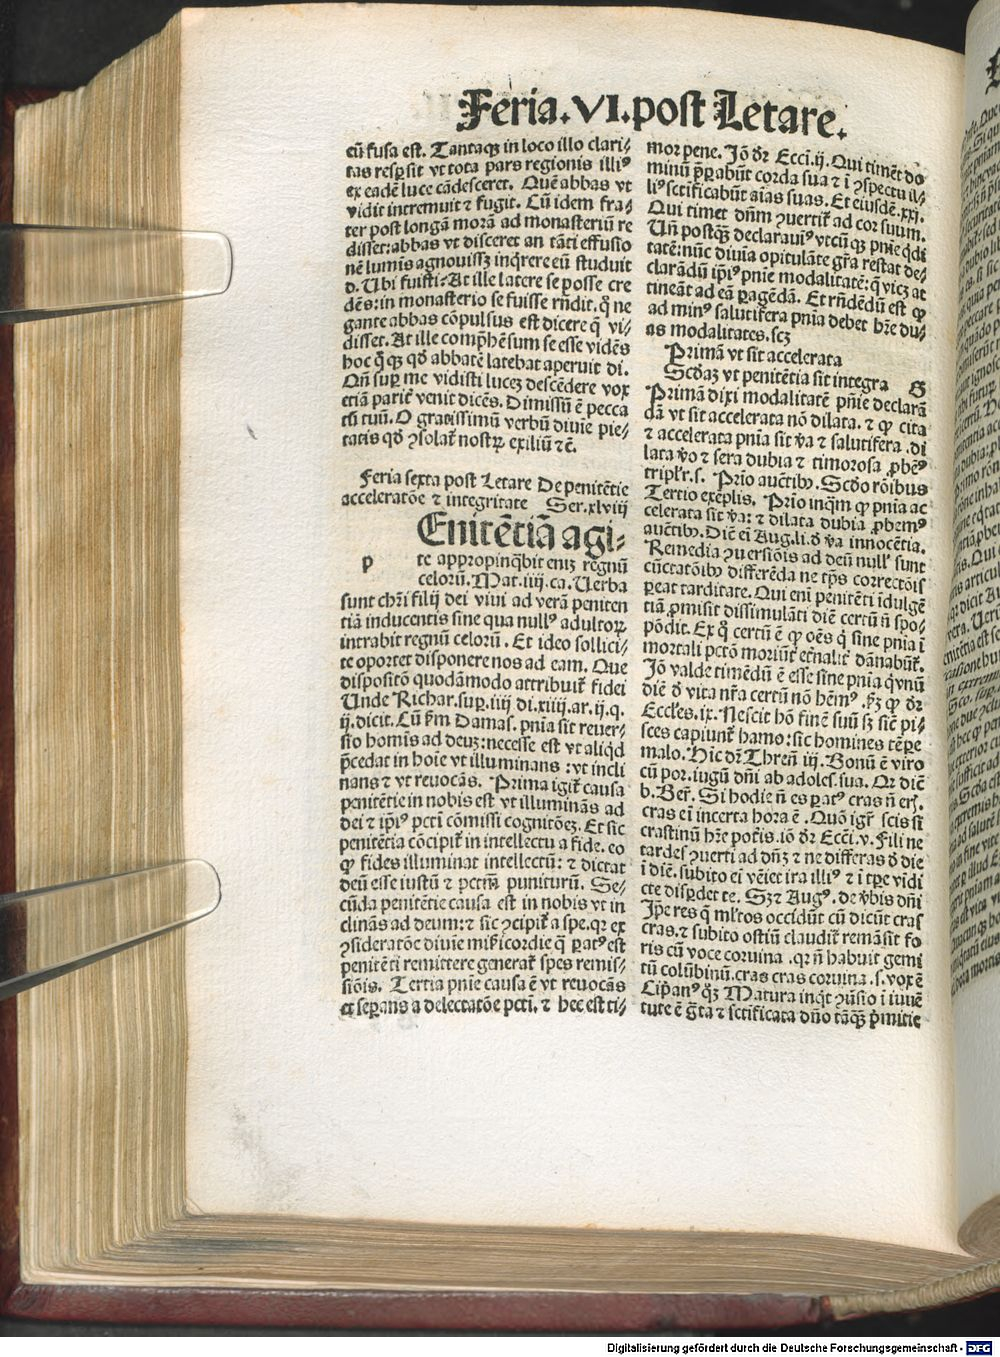 Feria.VI.post Letare.
cū fusa est. Tantaqꝫ in loco illo clari⸗
tas resꝑsit vt tota pars regionis illiꝰ
ex eadē luce cādesceret. Quē abbas vt
vidit intremuit ⁊ fugit. Cū idem fra⸗
ter post longā morā ad monasteriū re
disset: abbas vt disceret an tāti effusio
nē lumis agnouissꝫ inqrere eū studuit
d. Ubi fuisti? At ille latere se posse cre
dēs: in monasterio se fuisse rñdit. q̃ ne
gante abbas cōpulsus est dicere q̃ vi⸗
disset. At ille comp̃hēsum se esse vidēs
hoc q̃qꝫ qđ abbatē latebat aperuit di.
Qñ suꝑ me vidisti luceꝫ descēdere vox
etiā parit̃ venit dicēs. Dimissū ē pecca
tū tuū. O gratissimū verbū diuie pie⸗
tatis qđ ꝯsolat̃ nostrꝝ exiliū ⁊c̄.
Feria sexta post Letare De penitētie
acceleratōe ⁊ integritate Ser.xlviij
Enitētiā agi⸗
p te appropinq̃bit eniꝫ regnū
celorū. Mat.iiij.ca. Uerba
sunt chr̄i filij dei viui ad verā peniten
tiā inducentis sine qua nullꝰ adultorꝝ
intrabit regnū celorū. Et ideo sollici⸗
te oportet disponere nos ad eam. Que
dispositō quodāmodo attribuit̃ fidei
Unde Richar.suꝑ.iiij di.xiiij.ar.ij.q.
ij.dicit. Cū ẜm Damas. pnīa sit reuer⸗
sio homīs ad deuꝫ: necesse est vt aliqd
p̄cedat in hoīe vt illuminans: vt incli
nans ⁊ vt reuocās. Prima igit̃ causa
penitētie in nobis est vt illuminās ad
dei ⁊ ip̄iꝰ pcti cōmissi cognitōeꝫ. Et sic
penitētia cōcipit̃ in intellectu a fide. eo
ꝙ fides illuminat intellectū: ⁊ dictat
deū esse iustū ⁊ pctm̄ puniturū. Se⸗
cūda penitētie causa est in nobis vt in
clinās ad deum: ⁊ sic ꝯcipit̃ a spe. qꝛ ex
ꝯsideratōe diuie mīẽricordie q̃ ꝑatꝰ est
penitēti remittere generat̃ spes remis⸗
siōis. Tertia pnīe causa ē vt reuocās
⁊ seꝑans a delectatōe pcti. ⁊ hec est ti⸗
mor pene. Iō dr̄ Ecci.ij. Qui timēt do
minū p̄ꝑabūt corda sua ⁊ ī ꝯspectu il⸗
liꝰ sctificabūt aīas suas. Et eiusdē.xxi.
Qui timet dn̄m ꝯuertit̃ ad cor suum.
Uñ postqꝫ declarauiꝰ vtcūqꝫ pnīe qdi
tatē: nūc diuīa opitulāte gr̄a restat de⸗
clarādū ip̄iꝰ pnīe modalitatē: q̃ vicꝫ at
tineāt ad eā ꝑagēdā. Et rñdēdū est ꝙ
ad minꝰ salutifera pnīa debet hr̄e du⸗
as modalitates. scꝫ
Primā vt sit accelerata
Scđaꝫ vt penitētia sit integra G
Primā dixi modalitatē pnīe declarā
dā vt sit accelerata nō dilata. ⁊ ꝙ cita
⁊ accelerata pnīa sit v̄a ⁊ salutifera. di
lata v̄o ⁊ sera dubia ⁊ timorosa ꝓbēꝰ
triplr̄.s. Prīo auctibꝫ. Scđo rōibus
Tertio exēplis. Prīo inq̄m ꝙ pnīa ac
celerata sit v̄a: ⁊ dilata dubia ꝓbemꝰ
auctibꝫ. Dic̄ eī Aug.li.đ v̄a innocētia.
Remedia ꝯuersiōis ad deū nullꝰ sunt
cūctatōibꝫ differēda ne tp̄s correctōis
ꝑeat tarditate. Qui enī penitēti īdulgē
tiā ꝓmisit dissimulāti diē certū ñ spo⸗
pōdit. Ex q̃ certū ē ꝙ oēs q̃ sine pnīa ī
mortali pctō moriūt̃ et̃nalit̃ dānabūt̃.
Iō valde timēdū ē esse sine pnīa q̃vnū
diē đ vita nr̄a certū nō hēmꝰ. p̱ꝫ ꝙ dr̄
Eccles.ix. Nescit hō finē suū sꝫ sic̄ pi⸗
sces capiunt̃ hamo: sic homines tēꝑe
malo. Hic dr̄ Thren̄ iij. Bonū ē viro
cū por.iugū dn̄i ab adoles.sua. Qꝛ dic̄
b. Ber̃. Si hodie ñ es ꝑatꝰ cras ñ eri̇.
cras eī incerta hora ē. Quō igr̄ scis si
crastinū hr̄e poter̄is. iō dr̄ Ecci.v. Fili ne
tardes ꝯuerti ad dn̄ꝫ ⁊ ne differas đ die
ī diē. subito eī vēiet ira illiꝰ ⁊ ī tꝑe vidi
cte disꝑdet te. Sꝫ ⁊ Augꝰ. de v̄bis dn̄i
Ip̄e res q̃ ml̄tos occidūt cū dicūt cras
cras. ⁊ subito ostiū claudit̃ remāsit fo
ris cū voce coruina. qꝛ ñ habuit gemi
tū colūbinū. cras cras coruina.s. vox ē
Cip̄anꝰ q̊ꝫ Matura inqt ꝯūsio ī iuuē
tute ē g̃ta ⁊ sctificata dn̄o tāqꝫ p̄mitie
Digitalisierung gefördert durch die Deutsche Forschungsgemeinschaft - DFG